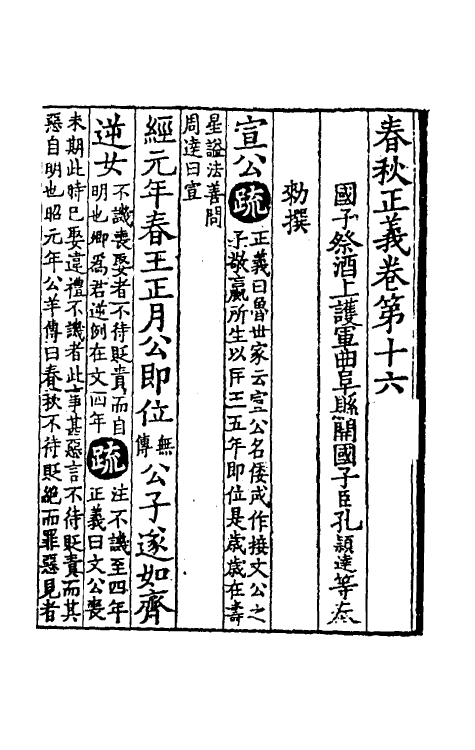 春秋正義卷第十六
國子祭酒上護軍曲阜縣開國子臣孔穎達等奉
勑撰
宣公疏正義曰魯世家云宣公名倭或作接文公之
子敬嬴所生以匡王五年即位是歲歲在壽
星謚法善問
周達曰宣
經元年春王正月公即位無傳公子遂如齊
逆女不譏喪娶者不待貶責而自
明也卿爲君逆例在文四年疏注不譏至四年
正義曰文公喪
未期此時巳娶違禮不譏者此事甚惡言不待貶責而其
惡自明也昭元年公羊傳曰春秋不待貶絕而罪惡見者